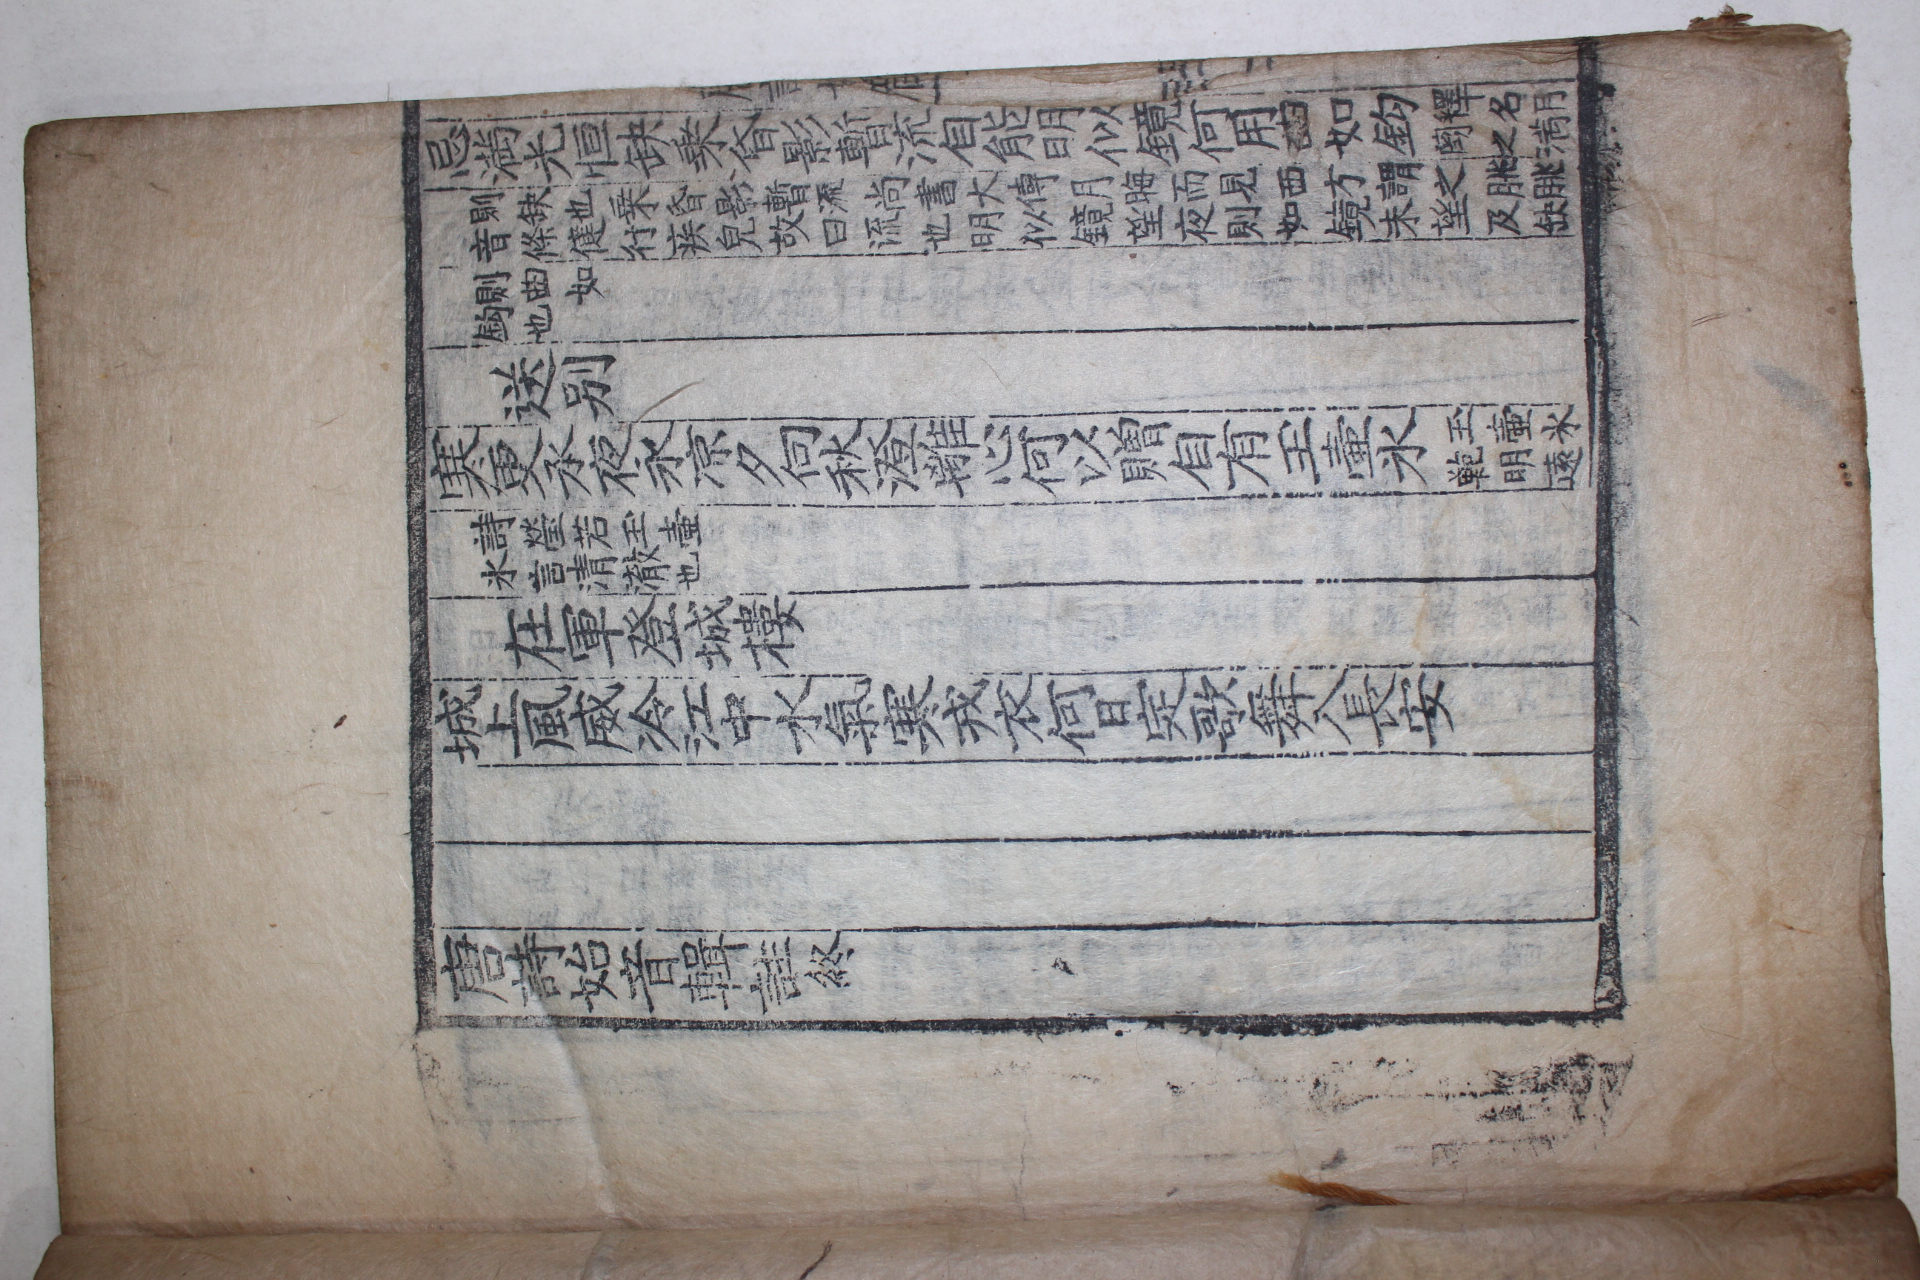 忌滿光恒缺乘昏影暫流自能明似鏡何用曲如鈎釋名月
之滿
則缺也乘昏影暫流尚書大傳月晦而見西方謂之朓朓
音條健行疾皃故曰流也明似鏡望夜則如鏡未望及缺
則曲如
鈎也
送别
寒更承夜永凉夕向秋澄離心何以贈自有玉壷氷玉壷氷
範明遠
詩瑩若玉壷
氷言清澈也
在軍登城樓
城上風威冷江中水氣寒戎衣何日定歌舞入長安
唐詩始音輯註終